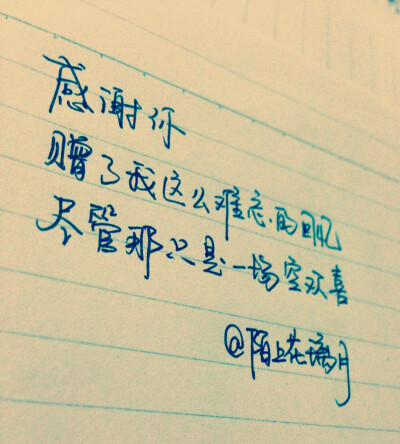 感谢你
赠了我这么难忘的回忆
尽管那只是一场空欢喜
@陌上花璃月